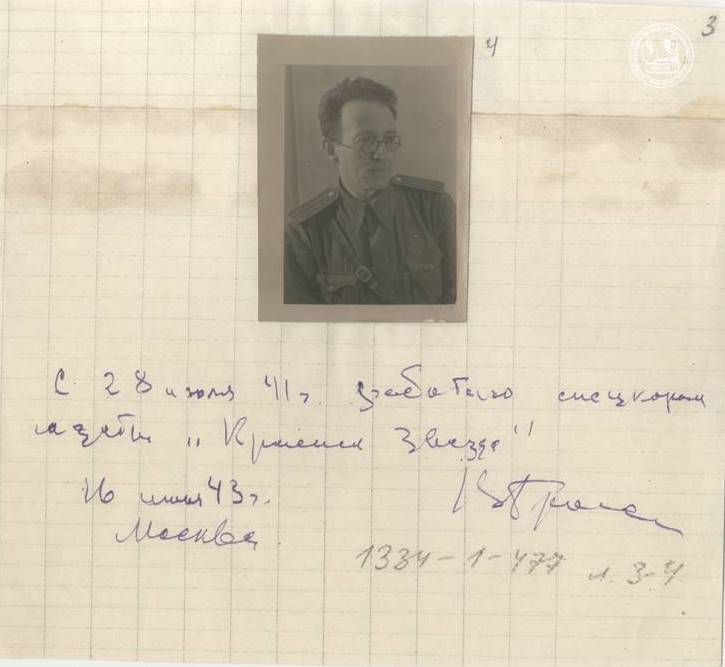 3
4
С 28 июля 41 г. работаю спецкором
газеты „Красная Звезда"
16 43 г.
Москва.
1334-1-477 л. 3-4